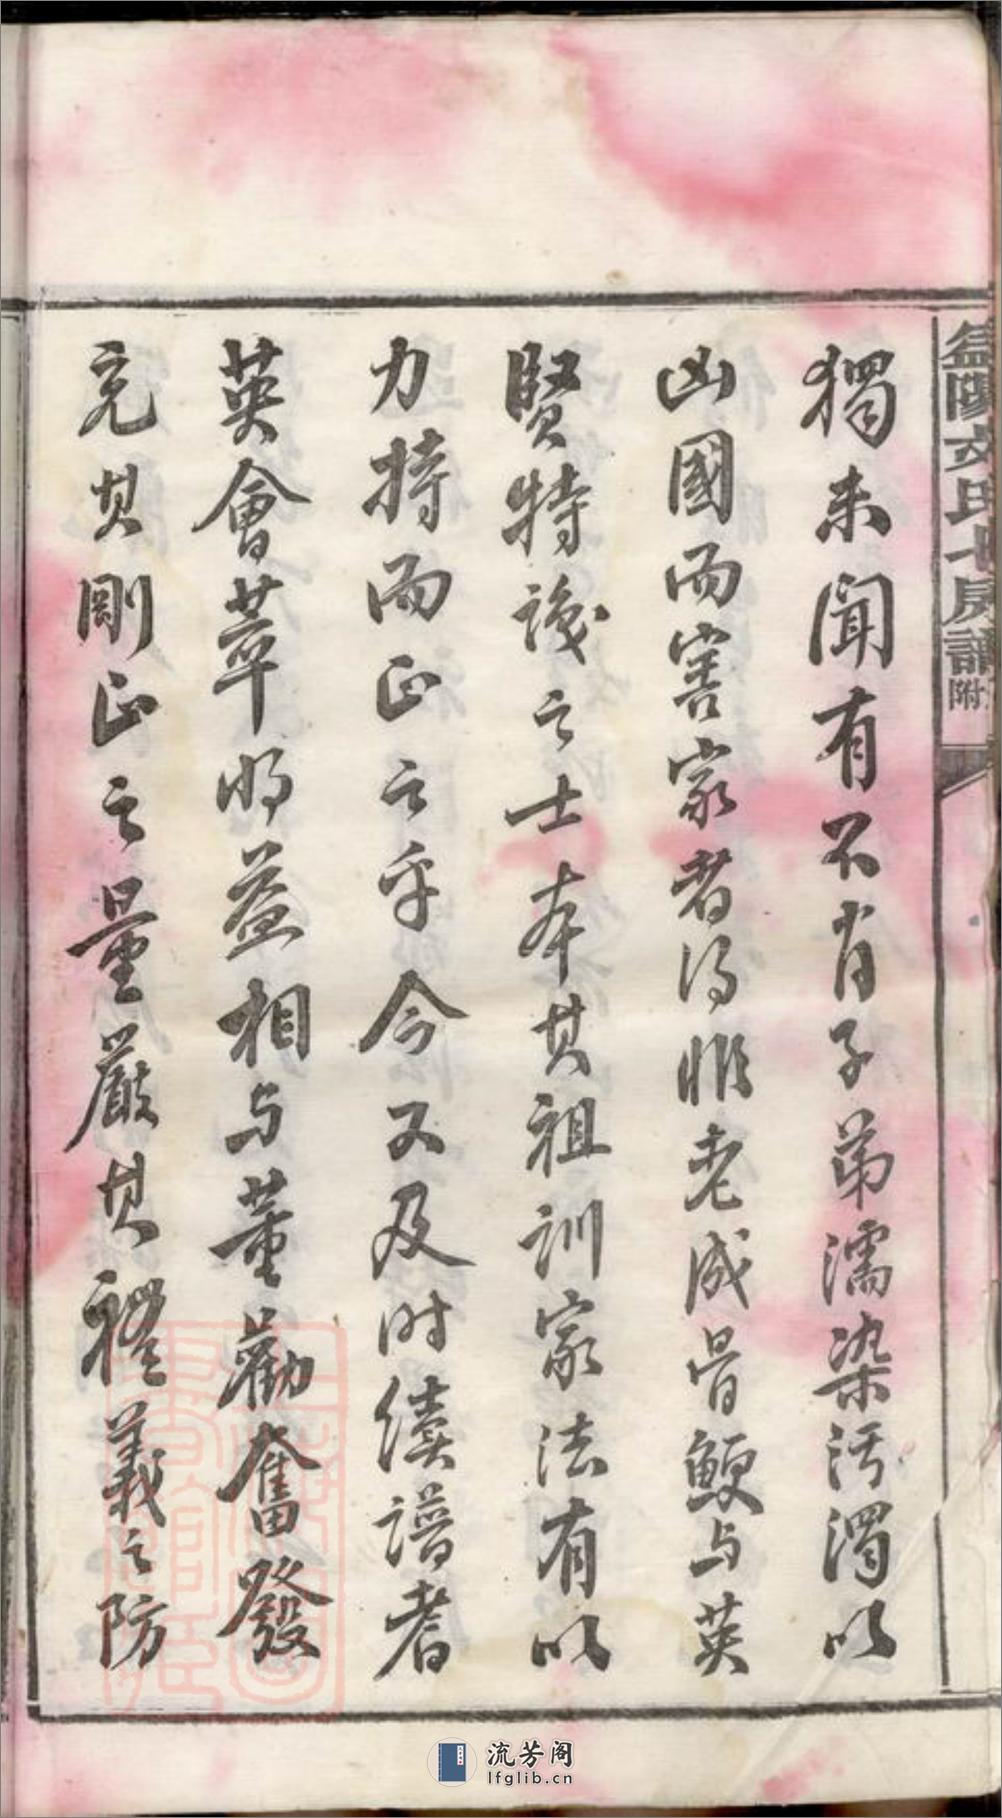 益陽文氏七房譜 附
獨未聞有不肖子弟濡染污濁以
凶國而害家者得非老成骨鯁与英
賢特識之士本其祖訓家法有以
力持而正之乎今又及时續譜耆
英會萃将益相与董勸奮發
充其剛正之量嚴其禮義之防
流芳阁
lfglib.cn